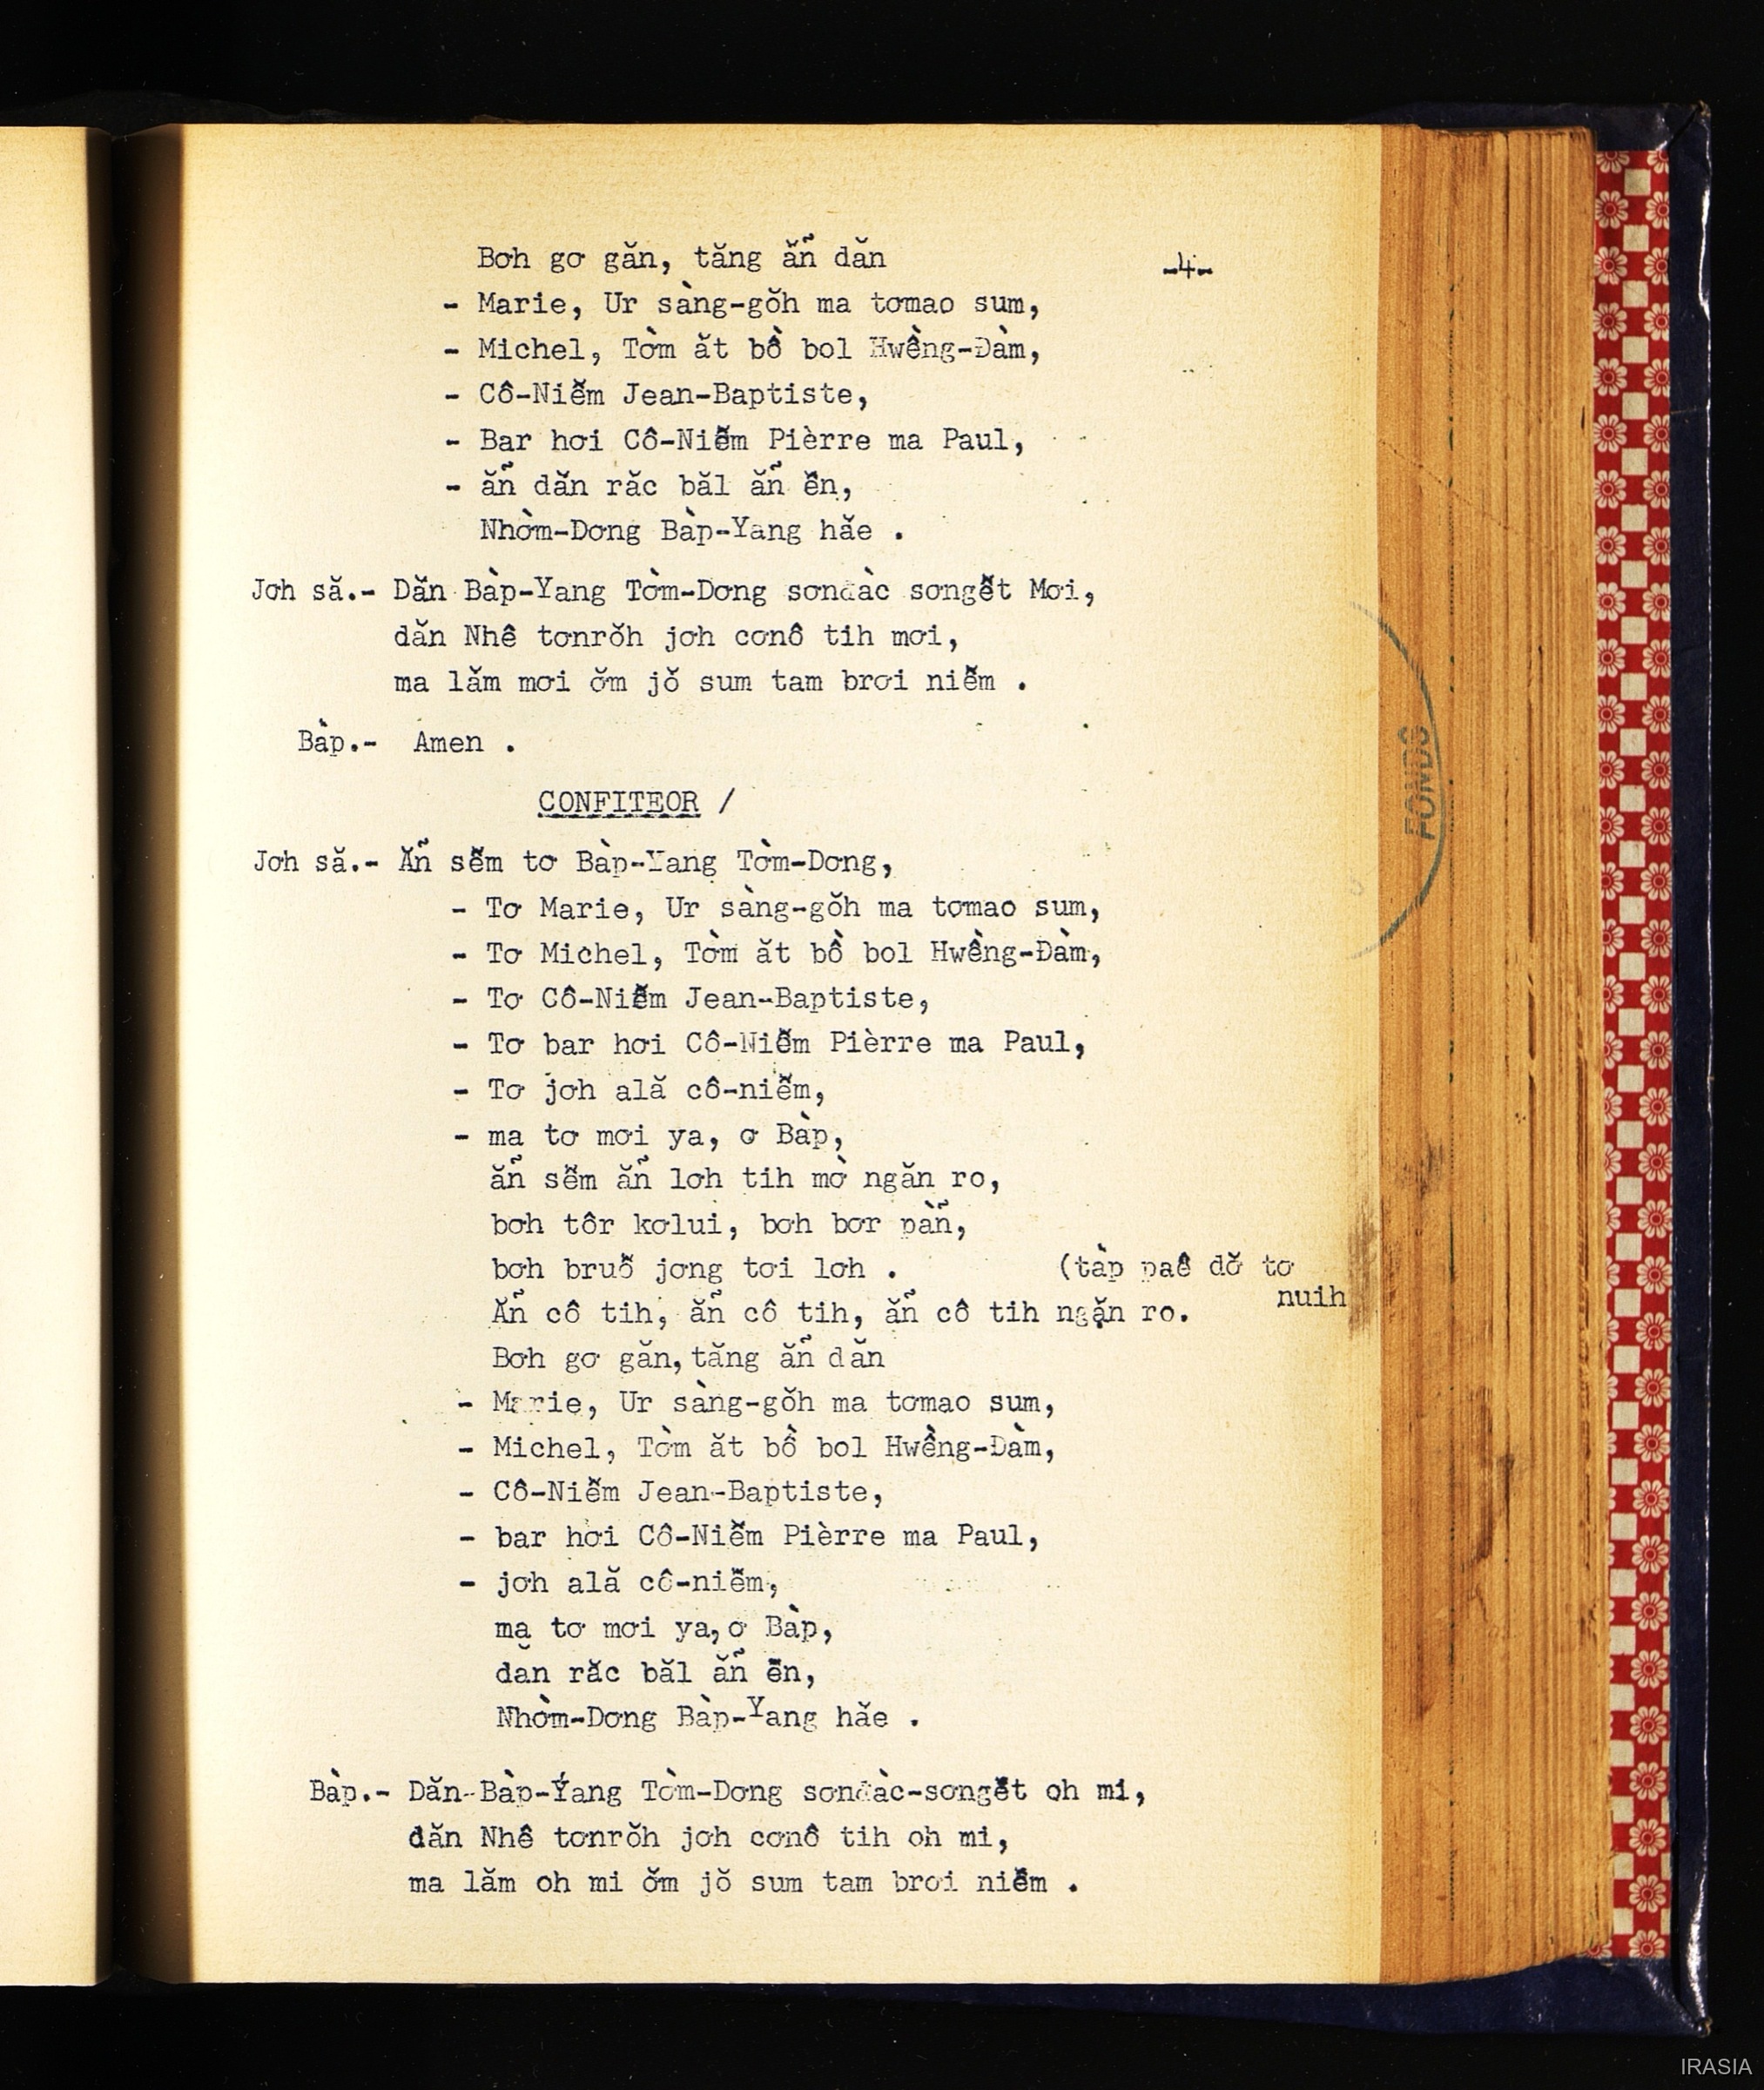 -4-
Bơh gơ găn, tăng ăñ dăn
- Marie, Ur sàng-gŏh ma tơmao sum,
- Michel, Tờm ăt bồ bol Hwềng-Đàm,
- Cô-Niê̆m Jean-Baptiste,
- Bar hơi Cô-Niê̆m Pièrre ma Paul,
- ăñ dăn răc băl ăñ ê̆n,
Nhờm-Dơng Bàp-Yang hăe .
Jơh să.- Dăn Bàp-Yang Tờm-Dơng sơndàc sơngê̆t Mơi,
dăn Nhê tơnrŏh jơh cơnô tih mơi,
ma lăm mơi ơ̆m jŏ sum tam brơi niê̆m .
Bàp.- Amen .
CONFITEOR /
Jơh să.- Ăñ sê̆m tơ Bàp-Yang Tờm-Dơng,
- Tơ Marie, Ur sàng-gŏh ma tơmao sum,
- Tơ Michel, Tờm ăt bồ bol Hwềng-Đàm,
- Tơ Cô-Niê̆m Jean-Baptiste,
- Tơ bar hơi Cô-Niê̆m Pièrre ma Paul,
- Tơ jơh ală cô-niê̆m,
- ma tơ mơi ya, ơ Bàp,
ăñ sê̆m ăñ lơh tih mờ ngăn ro,
bơh tôr kơlui, bơh bơr pàñ,
bơh bruô̆ jơng tơi lơh .
(tàp paê dơ̆ tơ
nuih
Ăñ cô tih, ăñ cô tih, ăñ cô tih ngăn ro.
Bơh gơ găn, tăng ăñ dăn
- Marie, Ur sàng-gŏh ma tơmao sum,
- Michel, Tờm ăt bồ bol Hwềng-Đàm,
- Cô-Niê̆m Jean-Baptiste,
- bar hơi Cô-Niê̆m Pièrre ma Paul,
- jơh ală cô-niê̆m,
ma tơ mơi ya, ơ Bàp,
dăn răc băl ăñ ê̆n,
Nhờm-Dơng Bàp-Yang hăe .
Bàp.- Dăn Bàp-Yang Tờm-Dơng sơndàc-sơngê̆t oh mi,
dăn Nhê tơnrŏh jơh cơnô tih oh mi,
ma lăm oh mi ơ̆m jŏ sum tam brơi niê̆m .
FONDS
IRASIA